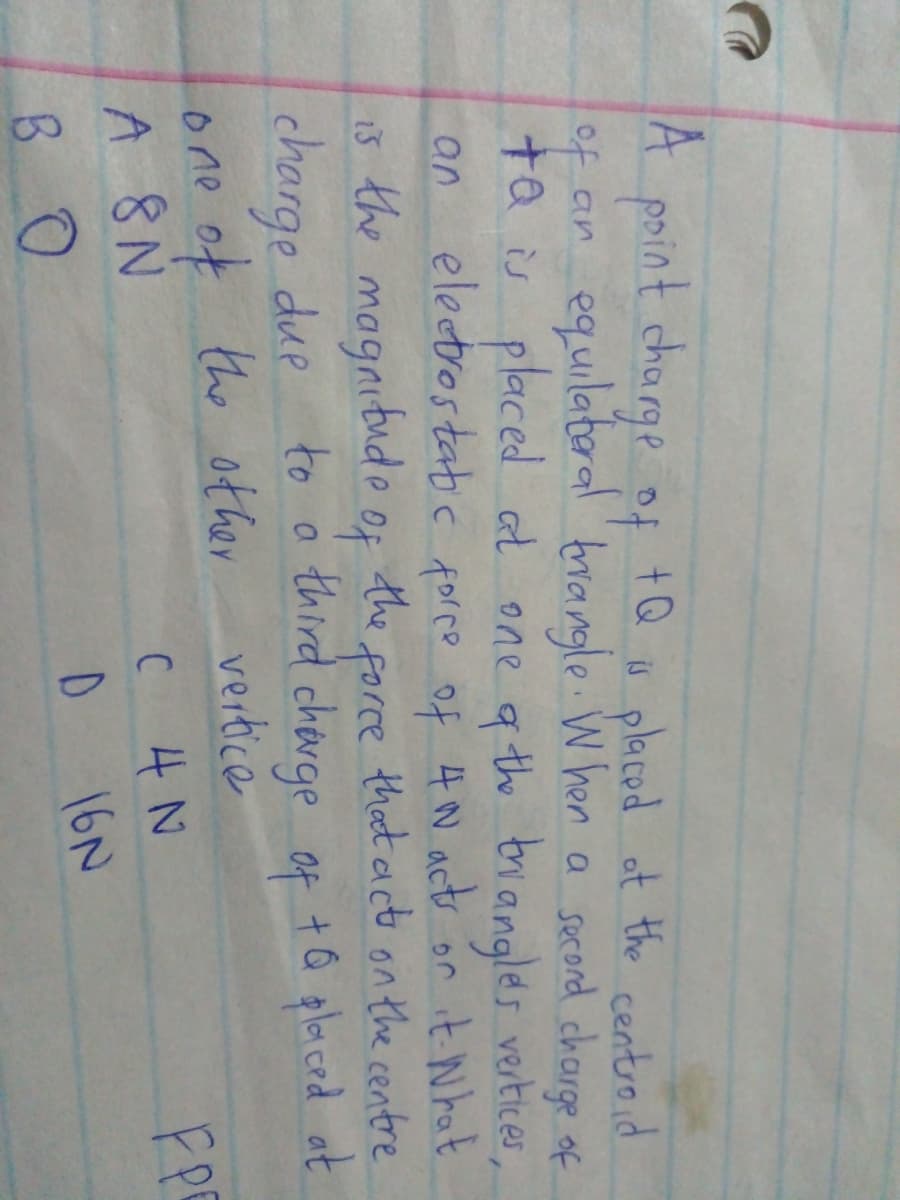 A point charge of +Q is placed at the centroid
of an equilateral triangle. When a second charge of
+Q is placed at one of the triangles vertices,
an electrostatic force of 4 N acts on it. What
is the magnitude of the force that acts on the centre
charge due to a third charge of +Q placed at
one of the other vertice
A 8N C 4 N
B 0 D 16N